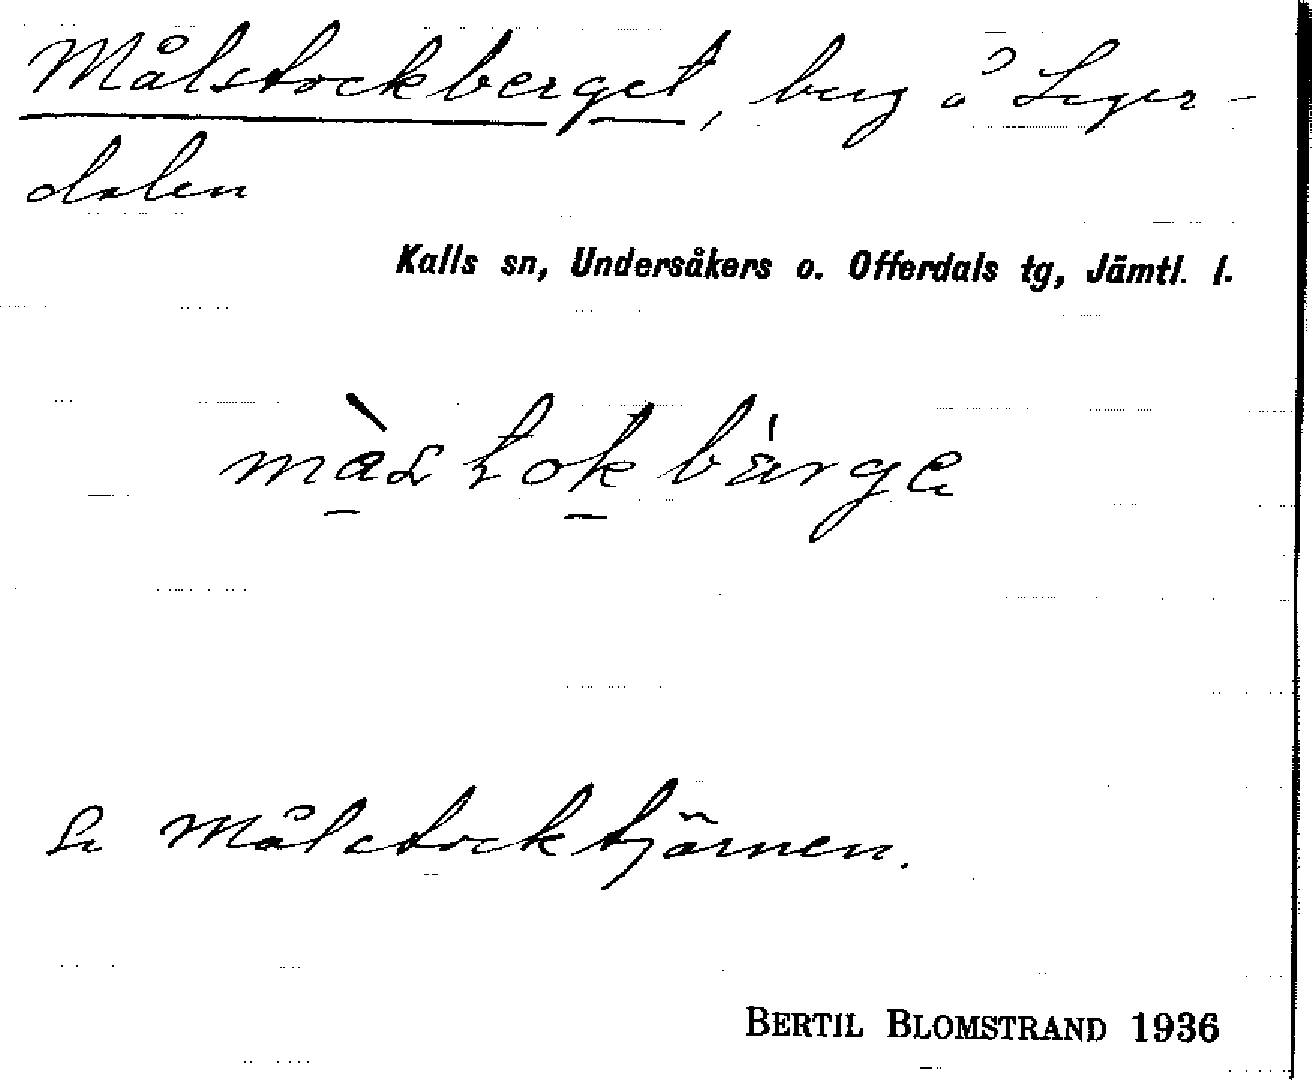 Målstockberget, berg å Leger-
dalen
Kalls sn, Undersåkers o. Offerdals tg, Jämtl. l.
Se Målstocktjärnen.
BERTIL BLOMSTRAND 1936